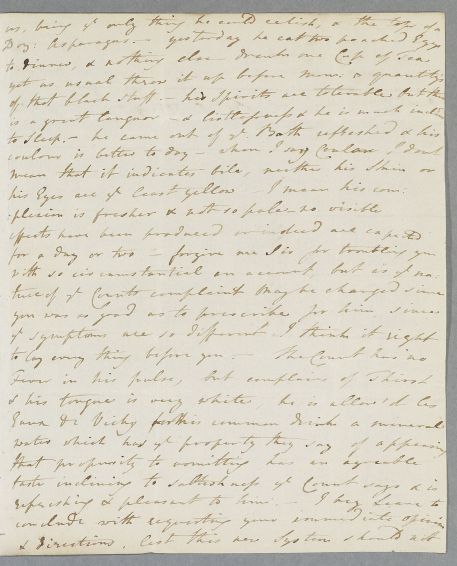 us, being ye only thing he could relish, & the tops of a
Doz: Asparagus. – yesterday he eat two poached Eggs
to dinner, & nothing else drank one Cup of Tea
yet as usual threw it up before &
of that black stuff. – his Spirits are tolerable but there
is a great languor & listlessness & he is much inclined
to Sleep. – he came out of ye. Bath refreshed & his
colour is better to day – when I say Colour I don't
mean that it indicates bile, neither his Skin or
his Eyes are ye least yellow – I mean his com:
:plexion is fresher & not so pale – no visible
effects have been produced or indeed are expected
for a day or two – forgive me Sir for troubling you
with so circumstantial an account, but as ye na:
ture of ye Counts complaint may be changed since
you was so good as to prescribe for him since
ye symptoms are so different I think it right
to lay every thing before you. – The Count has no
Fever in his pulse, but complains of Thirst
& his tongue is very white, he is allow'd Les
Eaux de Vichy for his common drink a mineral
water which has ye property they say of appeasing
that propensity to vomitting has an agreable
taste inclining to saltishness ye Count says & is
refreshing & pleasant to him. – I beg leave to
conclude with requesting your immediate opinion
& directions, lest this new System should not